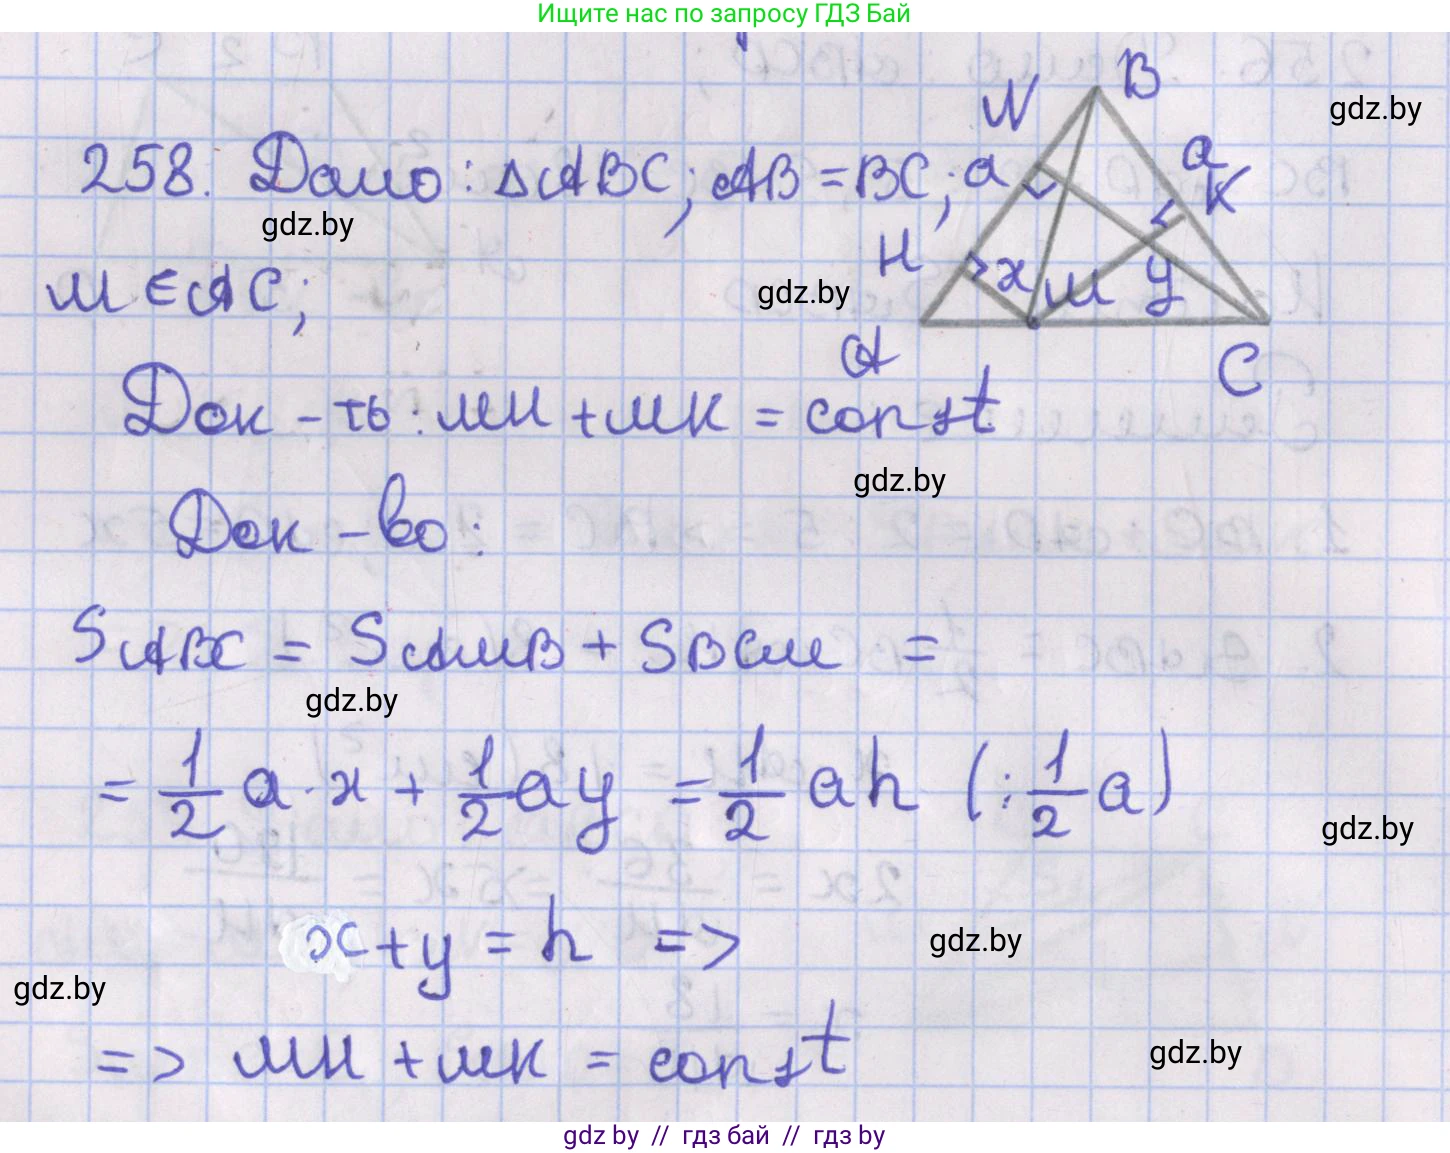 Ищите нас по запросу ГДЗ Бай
258. Дано: ΔABC; AB = BC;
M ∈ AC;
Док-ть: MH + MK = const
Док-во:
S ABC = S AMB + S BCM =
= 1/2 a · x + 1/2 ay = 1/2 ah (: 1/2 a)
x + y = h =>
=> MH + MK = const
B
N
a
a
K
H
x
M
y
A
C
gdz.by
gdz.by
gdz.by
gdz.by
gdz.by
gdz.by
gdz.by
gdz.by
gdz.by
gdz.by // гдз бай // гдз by